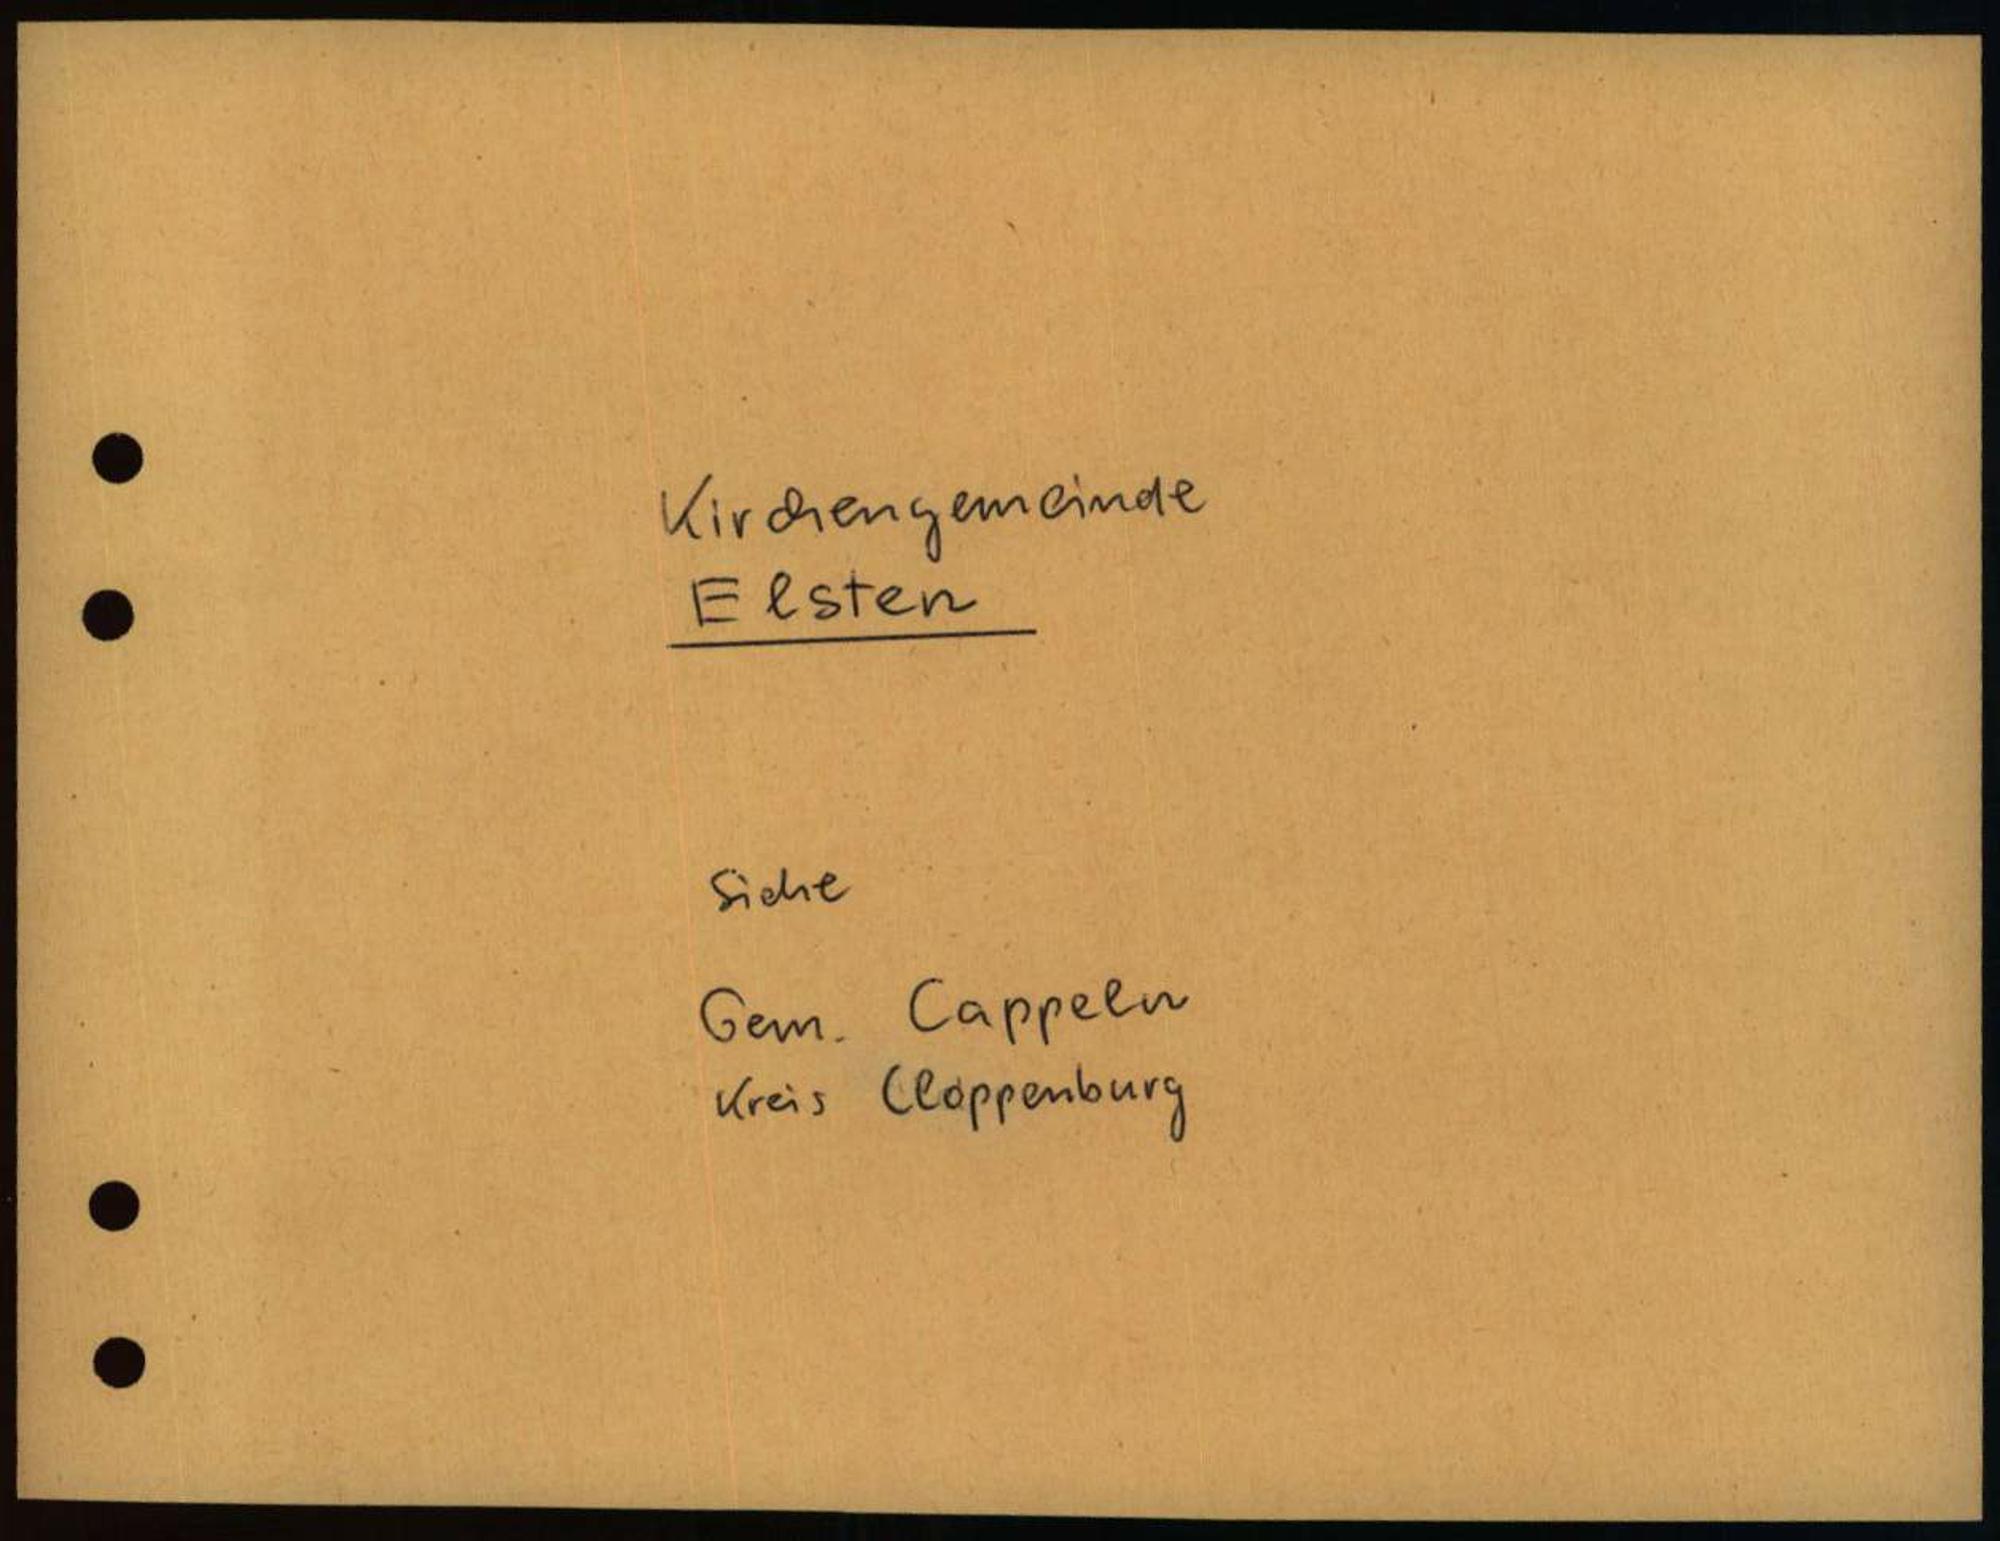 Kirchengemeinde
Elsten
siehe
Gem. Cappeln
Kreis Cloppenburg